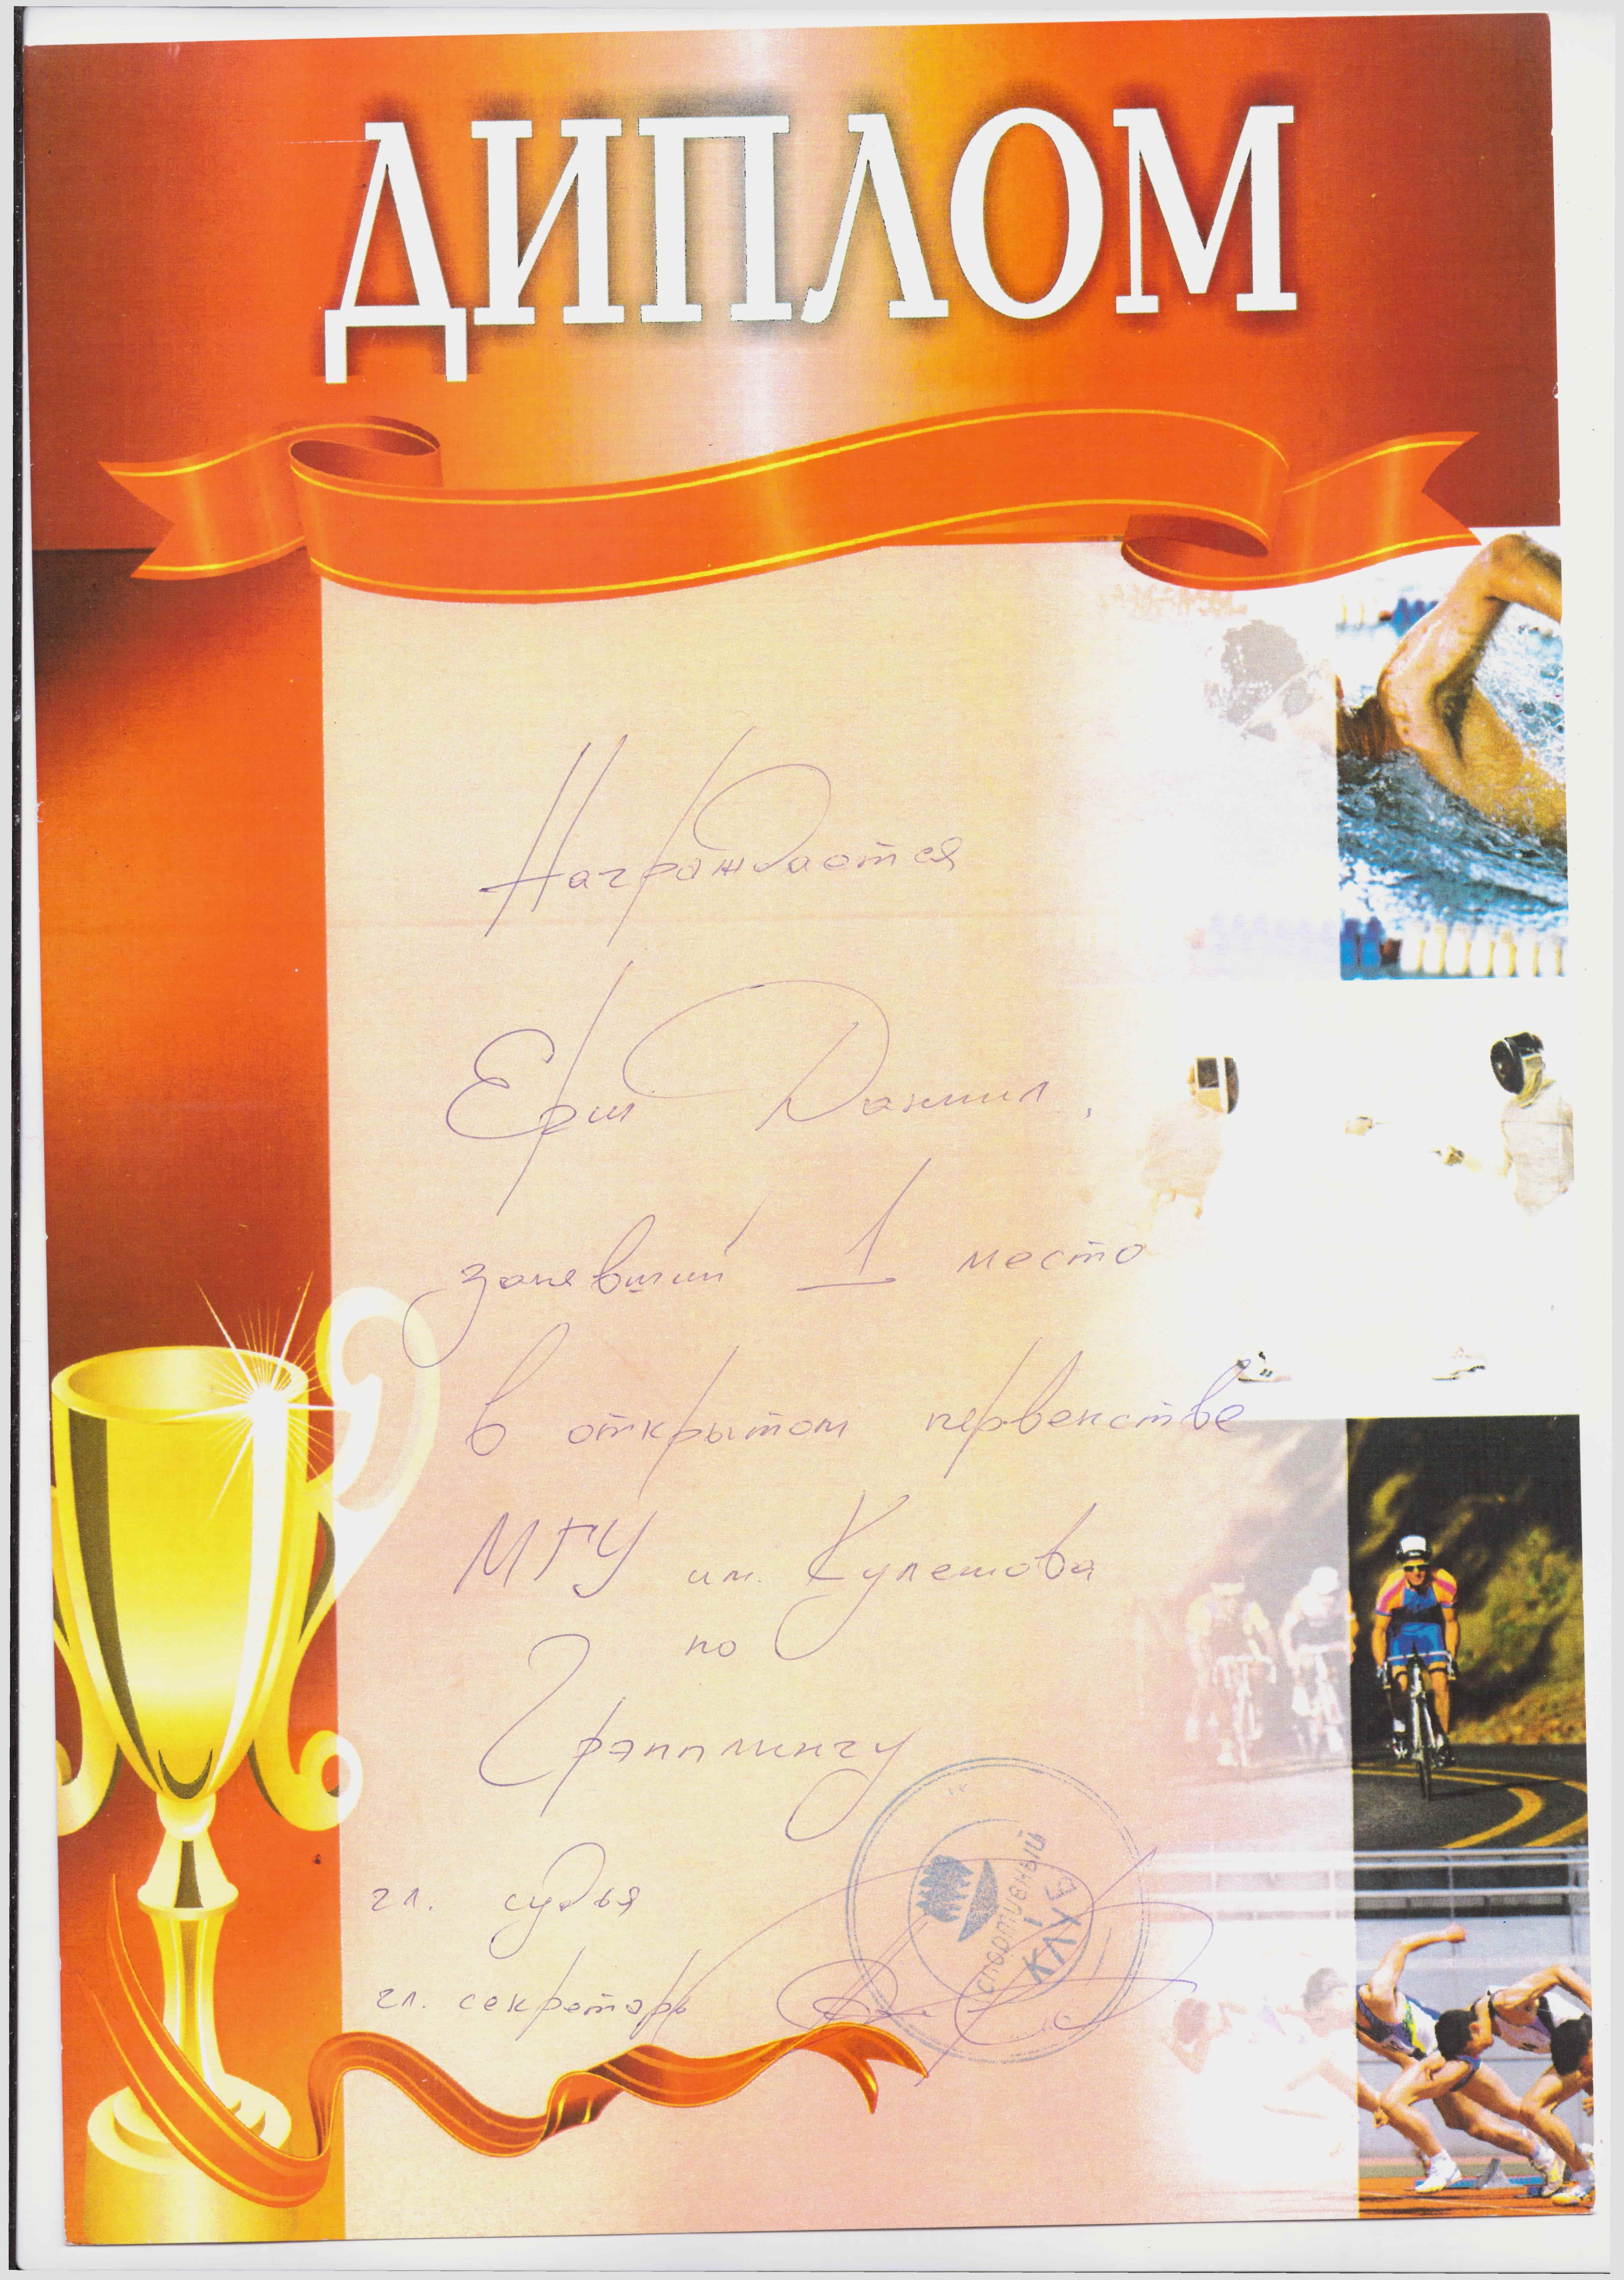 ДИПЛОМ
Награждается
Ерш Даниил,
занявший 1 место
в открытом первенстве
МГУ им. Кулешова
по
Грэпплингу
гл. судья
гл. секретарь
спортивный
КЛУБ